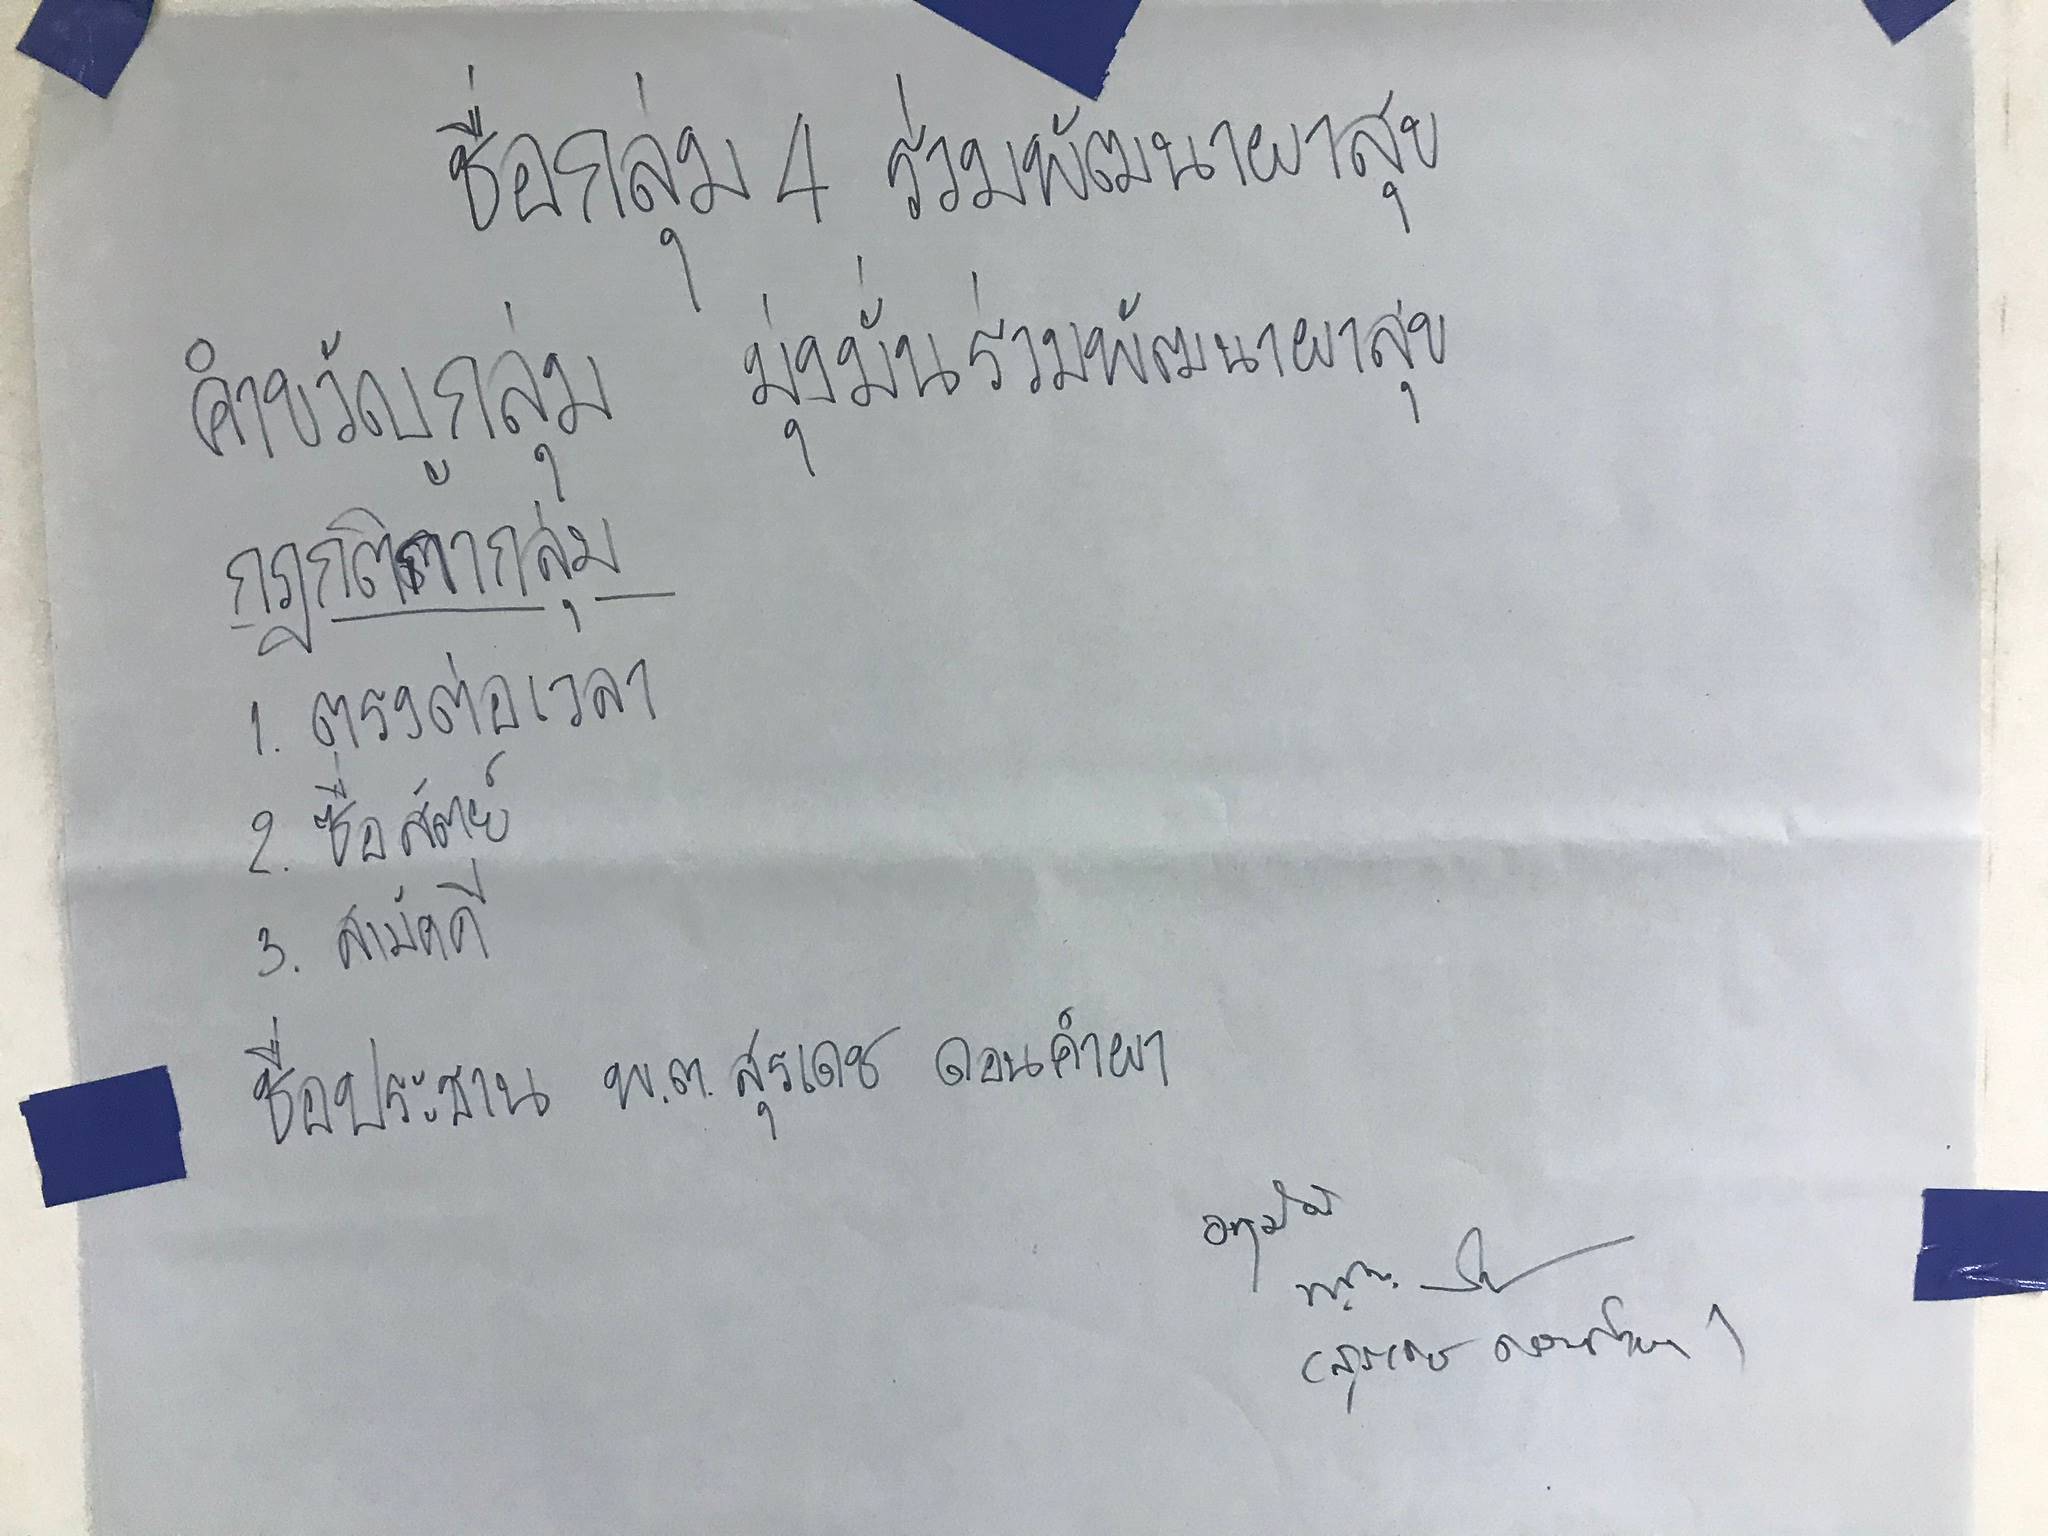 ชื่อกลุ่ม 4 ร่วมพัฒนาผาสุข
คำขวัญกลุ่ม มุ่งมั่นร่วมพัฒนาผาสุข
กฎกติกากลุ่ม
1. ตรงต่อเวลา
2. ซื่อสัตย์
3. สามัคคี
ชื่อประธาน พ.ต. สุรเดช ดอนคำผา
อนุมัติ
พ.ต.
(สุรเดช ดอนคำผา)